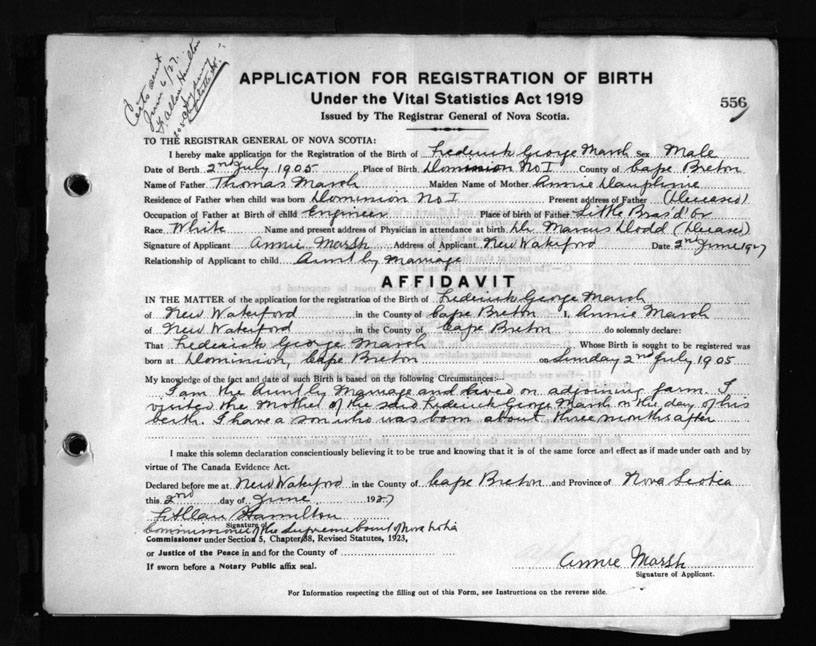 Certs sent
June 6/27.
F. Allan Hamilton
APPLICATION FOR REGISTRATION OF BIRTH
Under the Vital Statistics Act 1919
556
Issued by The Registrar General of Nova Scotia.
TO THE REGISTRAR GENERAL OF NOVA SCOTIA:
I hereby make application for the Registration of the Birth of Frederick George Marsh Sex Male
Date of Birth 2nd July 1905 Place of Birth Dominion No 1 County of Cape Breton
Name of Father Thomas Marsh Maiden Name of Mother Annie Dauphine
Residence of Father when child was born Dominion No 1 Present address of Father (Deceased)
Occupation of Father at Birth of child Engineer Place of birth of Father Little Bras d'Or
Race White Name and present address of Physician in attendance at birth Dr. Marcus Dodd (Deceased)
Signature of Applicant Annie Marsh Address of Applicant New Waterford Date 2nd June 1927
Relationship of Applicant to child Aunt by Marriage
AFFIDAVIT
IN THE MATTER of the application for the registration of the Birth of Frederick George Marsh
of New Waterford in the County of Cape Breton I, Annie Marsh
of New Waterford in the County of Cape Breton do solemnly declare:
That Frederick George Marsh Whose Birth is sought to be registered was
born at Dominion, Cape Breton on Sunday 2nd July 1905
My knowledge of the fact and date of such Birth is based on the following Circumstances:—
I am the Aunt by Marriage and lived on adjoining farm. I
visited the Mother of the said Frederick George Marsh on the day of his
birth. I have a son who was born about three months after
I make this solemn declaration conscientiously believing it to be true and knowing that it is of the same force and effect as if made under oath and by
virtue of The Canada Evidence Act.
Declared before me at New Waterford in the County of Cape Breton and Province of Nova Scotia
this 2nd day of June 1927
F. Allan Hamilton
Signature of
Commissioner of the Supreme Court of Nova Scotia
Commissioner under Section 5, Chapter 38, Revised Statutes, 1923,
or Justice of the Peace in and for the County of
If sworn before a Notary Public affix seal.
Annie Marsh
Signature of Applicant.
For Information respecting the filling out of this Form, see Instructions on the reverse side.